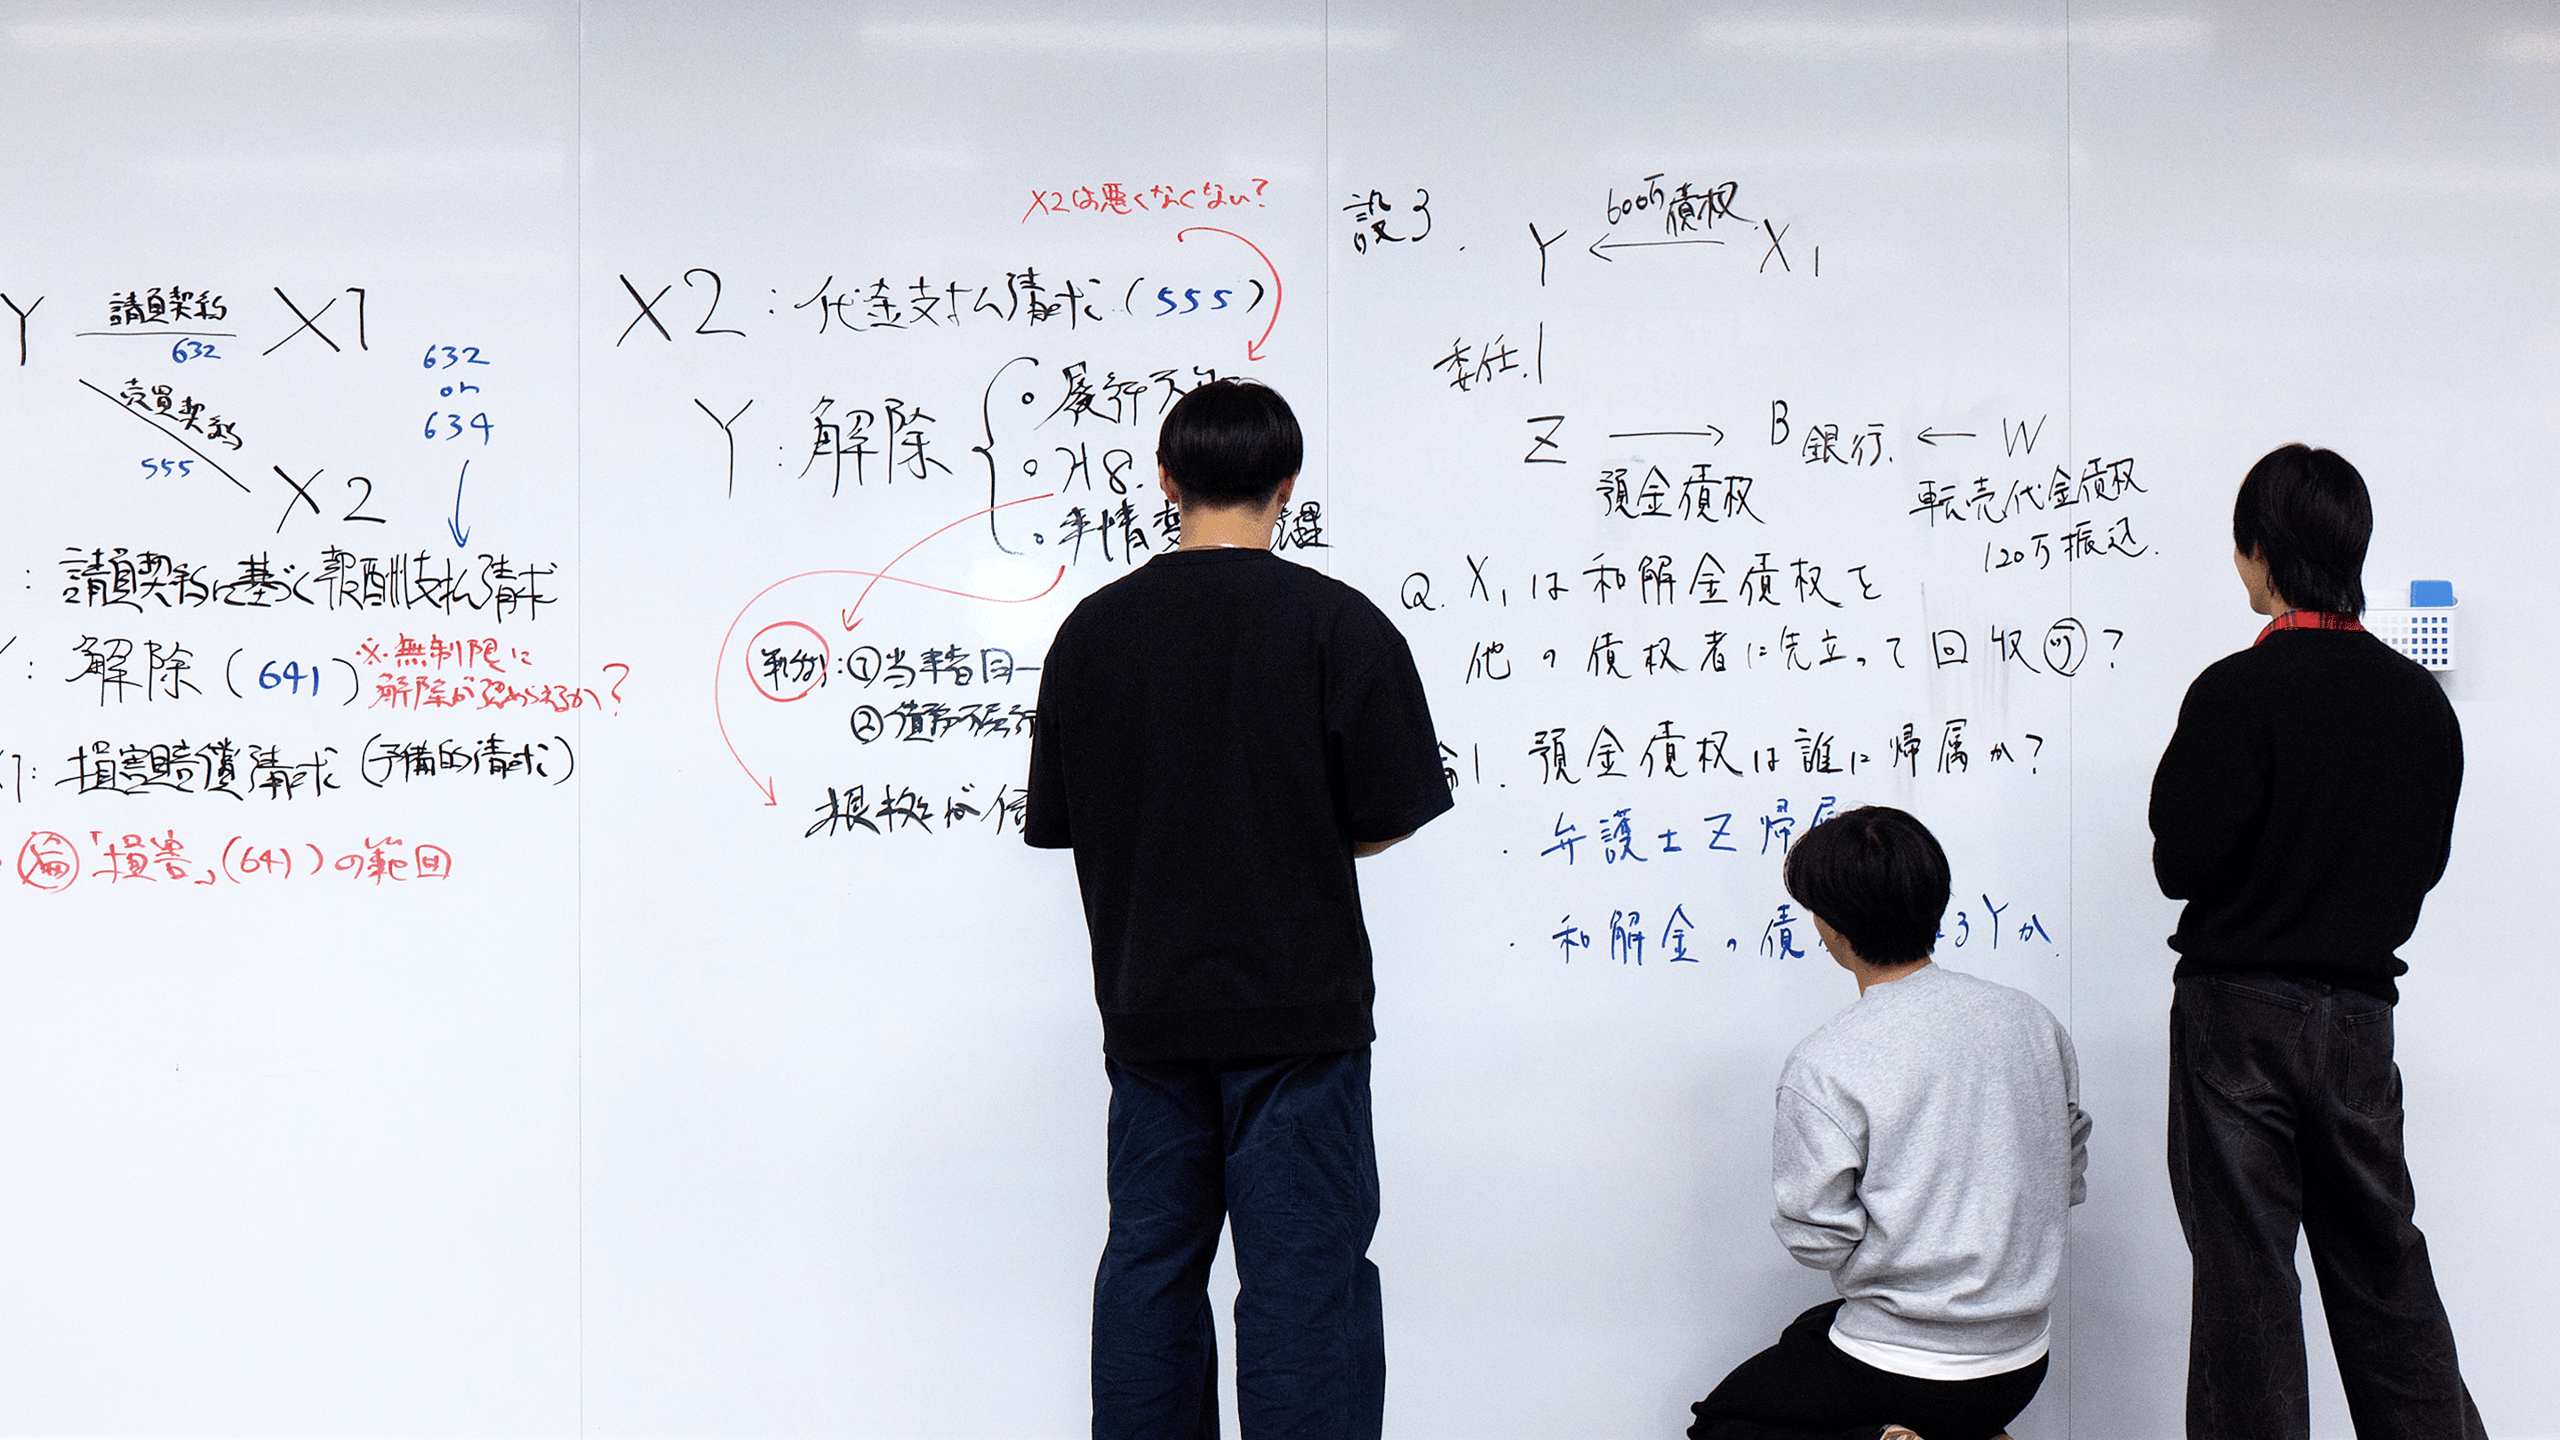 Y 請負契約 X1
632
売買契約
555
X2
632
or
634
: 請負契約に基づく報酬支払請求
: 解除(641)
※無制限に
解除が認められるか?
1: 損害賠償請求(予備的請求)
論「損害」(641)の範囲
X2は悪くなくない?
X2:代金支払請求(555)
Y:解除
・履行不
・H8.
・事情変
判例:①当事者同一
②債務不履行
根拠が
設3.
600万債権
Y ← X1
委任.1
Z → B銀行. ← W
預金債権
転売代金債権
120万振込.
Q. X1は和解金債権を
他の債権者に先立って回収可?
論1. 預金債権は誰に帰属か?
・弁護士Z帰属
・和解金の債 るYか